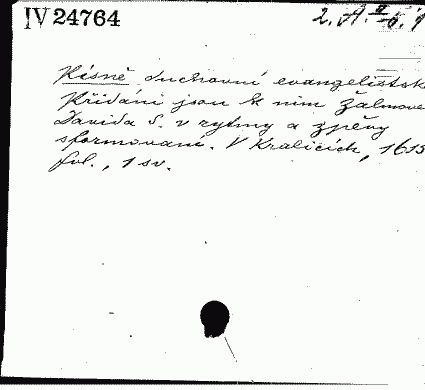 IV 24764
Písně duchovní evangelistsk
Přidáni jsou k nim žalmove
Davida S. v rytmy a zpěvy
sformovaní. V Kralicích, 1615
fol., 1 sv.